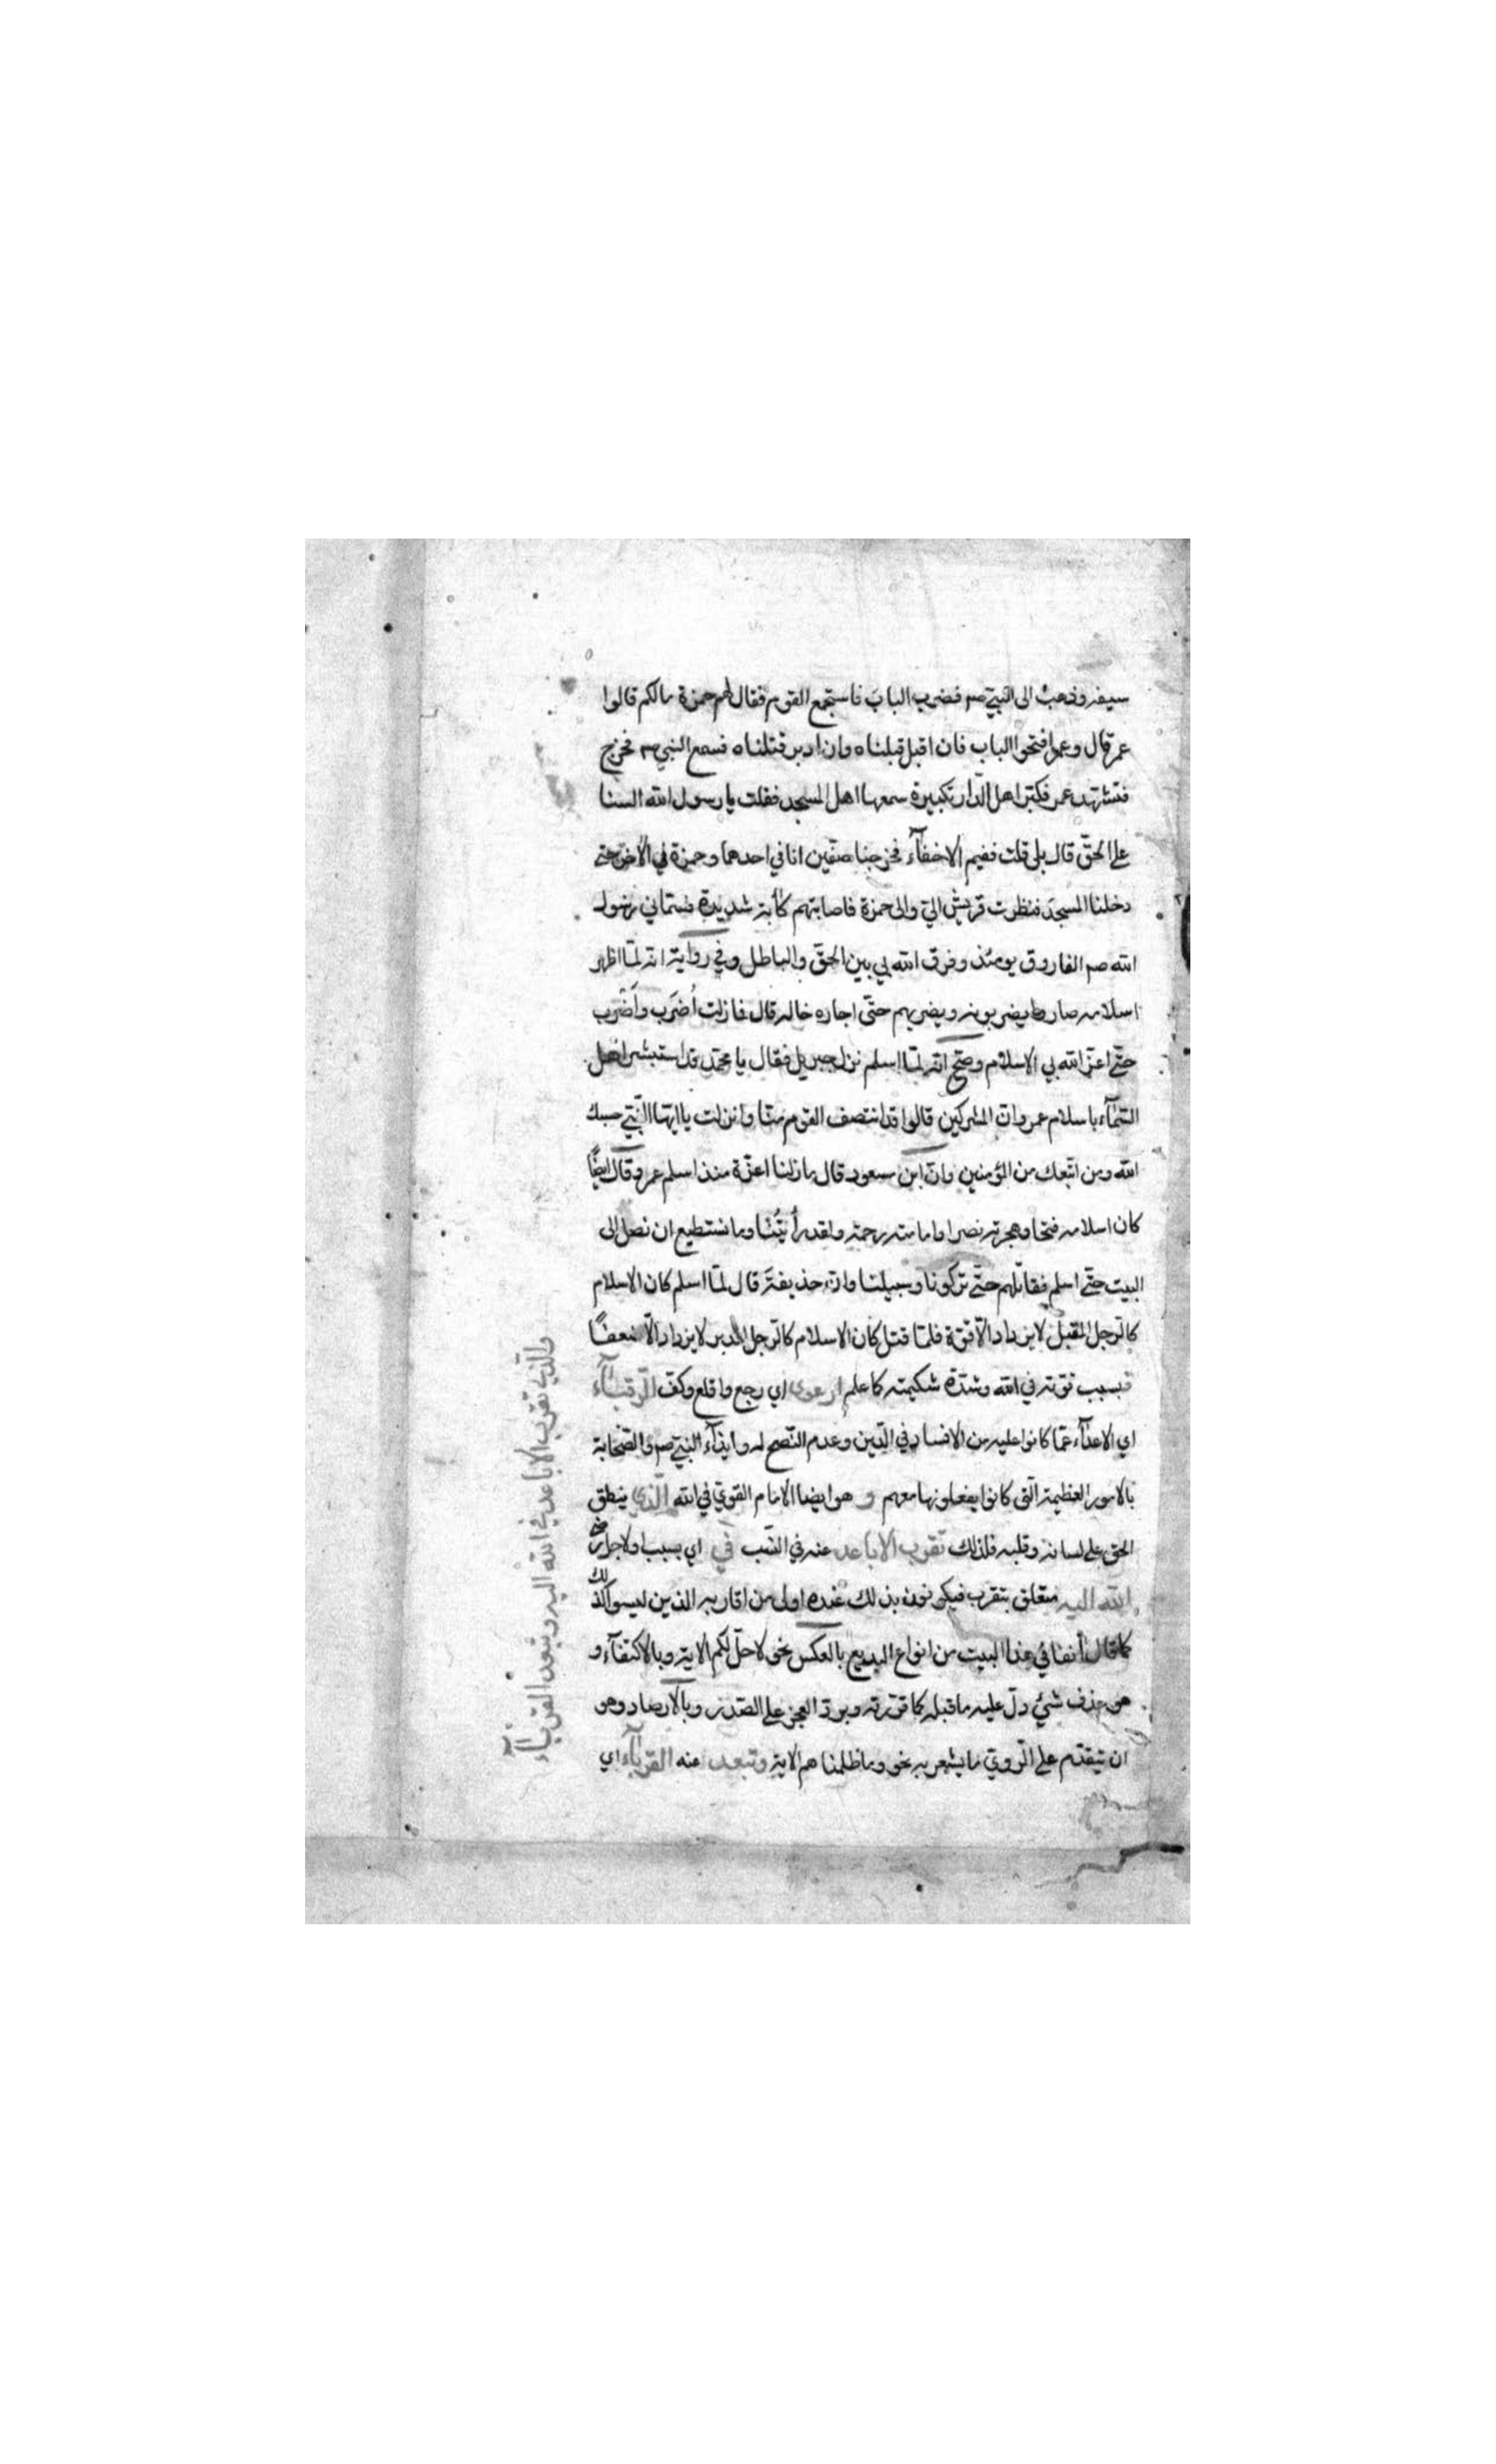 سيفه وذهب الى النبي صم فضرب الباب فاستجمع القوم فقال لهم حمزة مالكم قالوا
عمر قال وعمر افتحوا الباب فان اقبل قبلناه وان ادبر قتلناه فسمع النبي صم فخرج
فتشهد عمر فكبر اهل الدار تكبيرة سمعها اهل المسجد فقلت يا رسول الله السنا
على الحق قال بلى قلت ففيم الاخفآء فخرجنا صفين انا في احدهما وحمزة في الاخر حتى
دخلنا المسجد فنظرت قريش الي والى حمزة فاصابتهم كأبة شديدة فسماني رسول
الله صم الفاروق يومئذ وفرق الله بي بين الحق والباطل وفي رواية انه لما اظهر
اسلامه صاروا يضربونه ويضربهم حتى اجاره خاله قال فما زلت أضرَب وأضرب
حتى اعز الله بي الاسلام وصح انه لما اسلم نزل جبريل فقال يا محمد قد استبشر اهل
السمآء باسلام عمر وان المشركين قالوا قد انتصف القوم منا وانزلت يا ايها النبي حسبك
الله ومن اتبعك من المؤمنين وان ابن مسعود قال ما زلنا اعزة منذ اسلم عمر وقال ايضًا
كان اسلامه فتحا وهجرته نصرا وامامته رحمة ولقد رأيتنا وما نستطيع ان نصل الى
البيت حتى اسلم فقاتلهم حتى تركونا وسبيلنا وان حذيفة قال لما اسلم كان الاسلام
كالرجل المقبل لا يزداد الا قوة فلما قتل كان الاسلام كالرجل المدبر لا يزداد الا ضعفًا
فبسبب قوته في الله وشدة شكيمته كما علم ارعوى اي رجع واقلع وكف الرقبآء
اي الاعدآء عما كانوا عليه من الافساد في الدين وعدم النصح له وايذآء النبي صم والصحابة
بالامور العظيمة التي كانوا يفعلونها معهم و هو ايضا الامام القوي في الله الذي ينطق
الحق على لسانه وقلبه فلذلك تقرب الاباعد عنه في النسب في اي بسبب او لاجل
الله اليه متعلق بتقرب فيكونون بذلك عنده اولى من اقاربه الذين ليسوا كذلك
كما قال أنفا في هذا البيت من انواع البديع بالعكس نحو لا حل لكم الاية وبالاكتفآء و
هو حذف شئ دل عليه ما قبله كما قررته وبرد العجز على الصدر وبالارصاد وهو
ان يتقدم على الروي ما يشعر به نحو وما ظلمناهم الاية وتبعد عنه القربآء اي
والذي تقرب الاباعد في الله اليه وتبعد القربآء